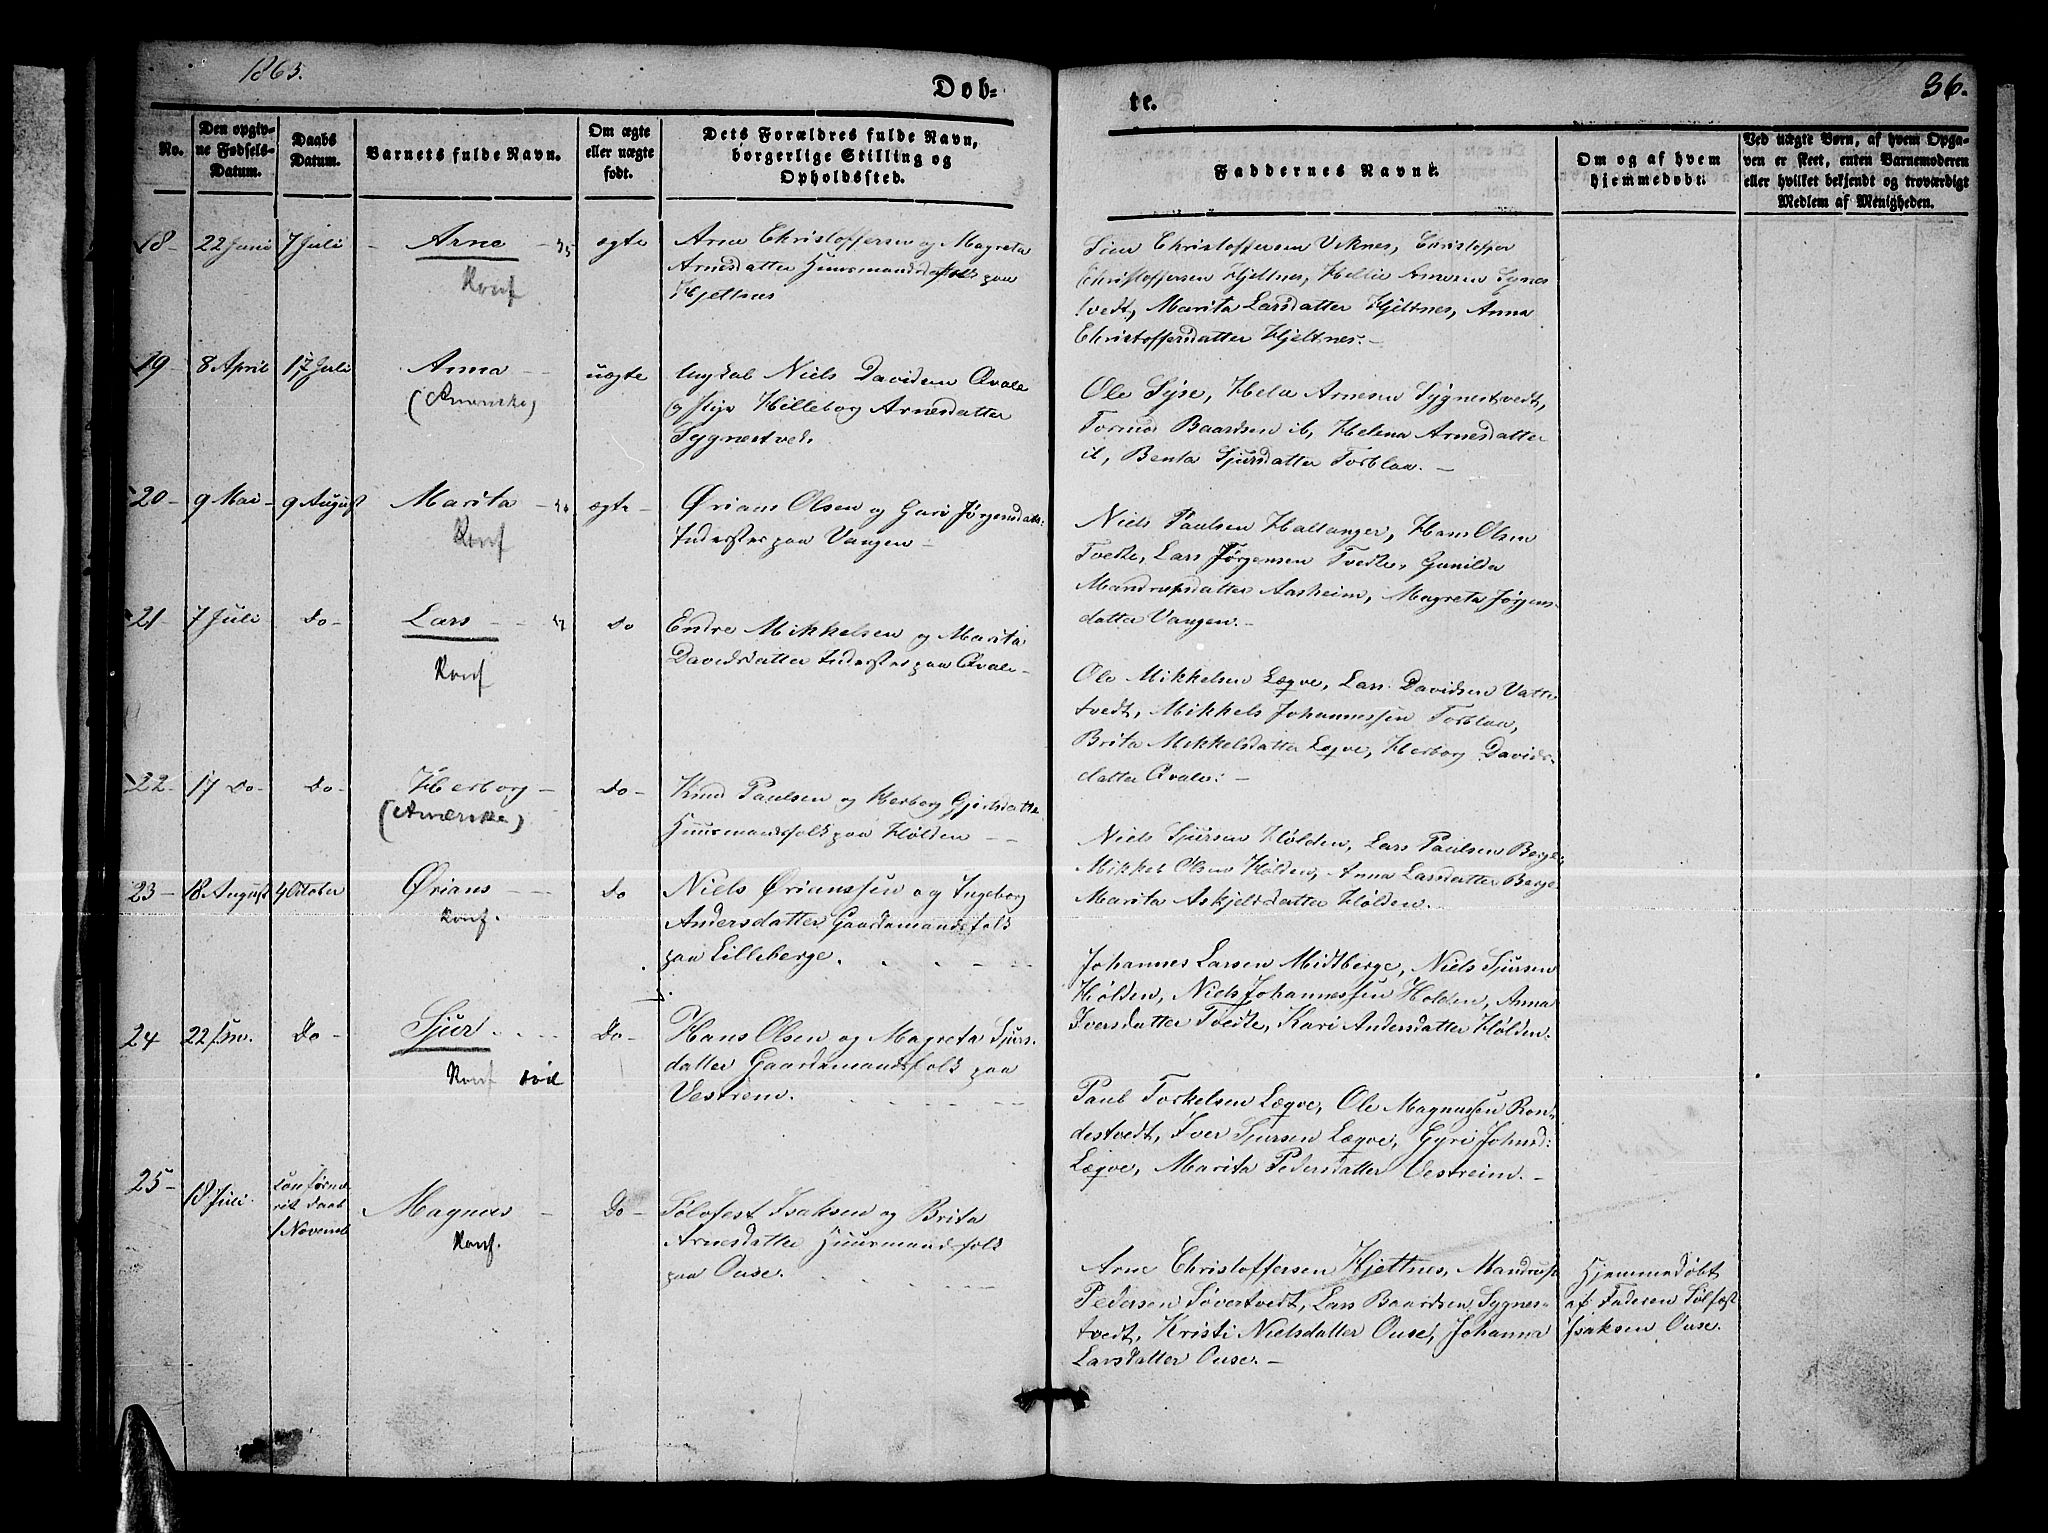 1863.
Døb=
te.
36.
No.
Den opgiv-
ne Fødsels-
Datum.
Daabs
Datum.
Barnets fulde Navn.
Om ægte
eller uægte
født.
Dets Forældres fulde Navn,
borgerlige Stilling og
Opholdssted.
Faddernes Navne.
Om og af hvem
hjemmedøbt.
Ved uægte Børn, af hvem Opga-
ven er skeet, enten Barnemoderen
eller hvilket bekjendt og troværdigt
Medlem af Menigheden.
18 - 22 Juni 7 Juli - Arne ægte
Konf
Arne Christoffersen og Magreta
Arnesdatter Huusmandsfolk paa
Hjeltnes
Christoffersen Viknes, Christoffer
Christoffersen Hjeltnes, Arnesen Sygnes
tvedt, Marita Larsdatter Hjeltnes, Anna
Christoffersdatter Hjeltnes. -
19 - 8 April 17 Juli Anna - uægte
(Amerika)
Ungkal Niels Davidsen Qvale
og Pige Hilleborg Arnesdatter
Sygnestvedt
Ole Syse, Arnesen Sygnestvedt,
Baardsen ib, Helena Arnesdatter
ib, Benta Sjursdatter Torblaa. -
20 - 9 Mai - 9 August Marita - ægte -
Konf
Ørians Olsen og Guri Jørgensdatt:
Inderster paa Vangen -
Niels Paulsen Haltanger, Hans Olsen
Tvedte, Lars Jørgensen Tvedte, Gunilda
Mandrupsdatter Aasheim, Magreta Jørgens-
datter Vangen. -
21 - 7 Juli Do - Lars - - Do
Konf
Endre Mikkelsen og Marita
Davidsdatter Inderster paa Qvale -
Ole Mikkelsen Lægve, Lars Davidsen Vatte
tvedt, Mikkels Johannessen Torblaa,
Brita Mikkelsdatter Lægve, Herborg Davids-
datter Qvale: -
22 - 17 Do - Do - Herborg - Do -
(Amerika)
Knud Paulsen og Herborg
Huusmandsfolk paa Hølden - -
Niels Sjursen Hølden, Lars Paulsen Berge
Mikkel Olsen Hølden, Anna Larsdatter Berge
Marita Askjelsdatter Hølden.
23 - 18 August 4 October Ørians - - Do
Konf.
Niels Ørianssen og Ingeborg
Andersdatter Gaardmandsfolk
paa Lilleberge.
Johannes Larsen Midtberge, Niels Sjursen
Hølden, Niels Johannessen Holden, Anna
Iversdatter Tvedte, Kari Andersdatter Hølden.
24 22 Do - Sjur Do -
Konf
Hans Olsen og Magreta Sjurs-
datter Gaardmandsfolk paa
Vestreim.
Paul Torkelsen Lægve, Ole Magnussen Ron-
destvedt, Iver Sjursen Lægve, Gyri Johnsd:
Lægve, Marita Pedersdatter Vestreim. -
25 - 18 Juli
Daab
1 Novemb
Magnus - Do -
Konf.
Sølvfest Isaksen og Brita
Arnesdatter Huusmandsfolk
paa Ouse.
Arne Christoffersen Hjeltnes, Mandrup
Pedersen Søvertvedt, Lars Baardsen Sygnes-
tvedt, Kristi Nielsdatter Ouse, Johanna
Larsdatter Ouse. -
Hjemmedøbt
af Faderen Sølfæst
Isaksen Ouse.